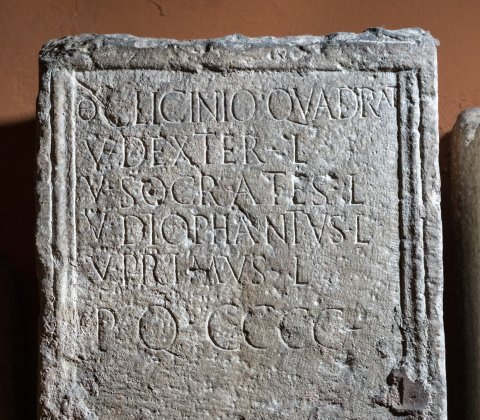 Ꝋ C LICINIO QVADRA
V · DEXTER · L
V · SOCRATES · L
V · DIOPHANTVS · L
V · PRIMVS · L
P Q CCCC